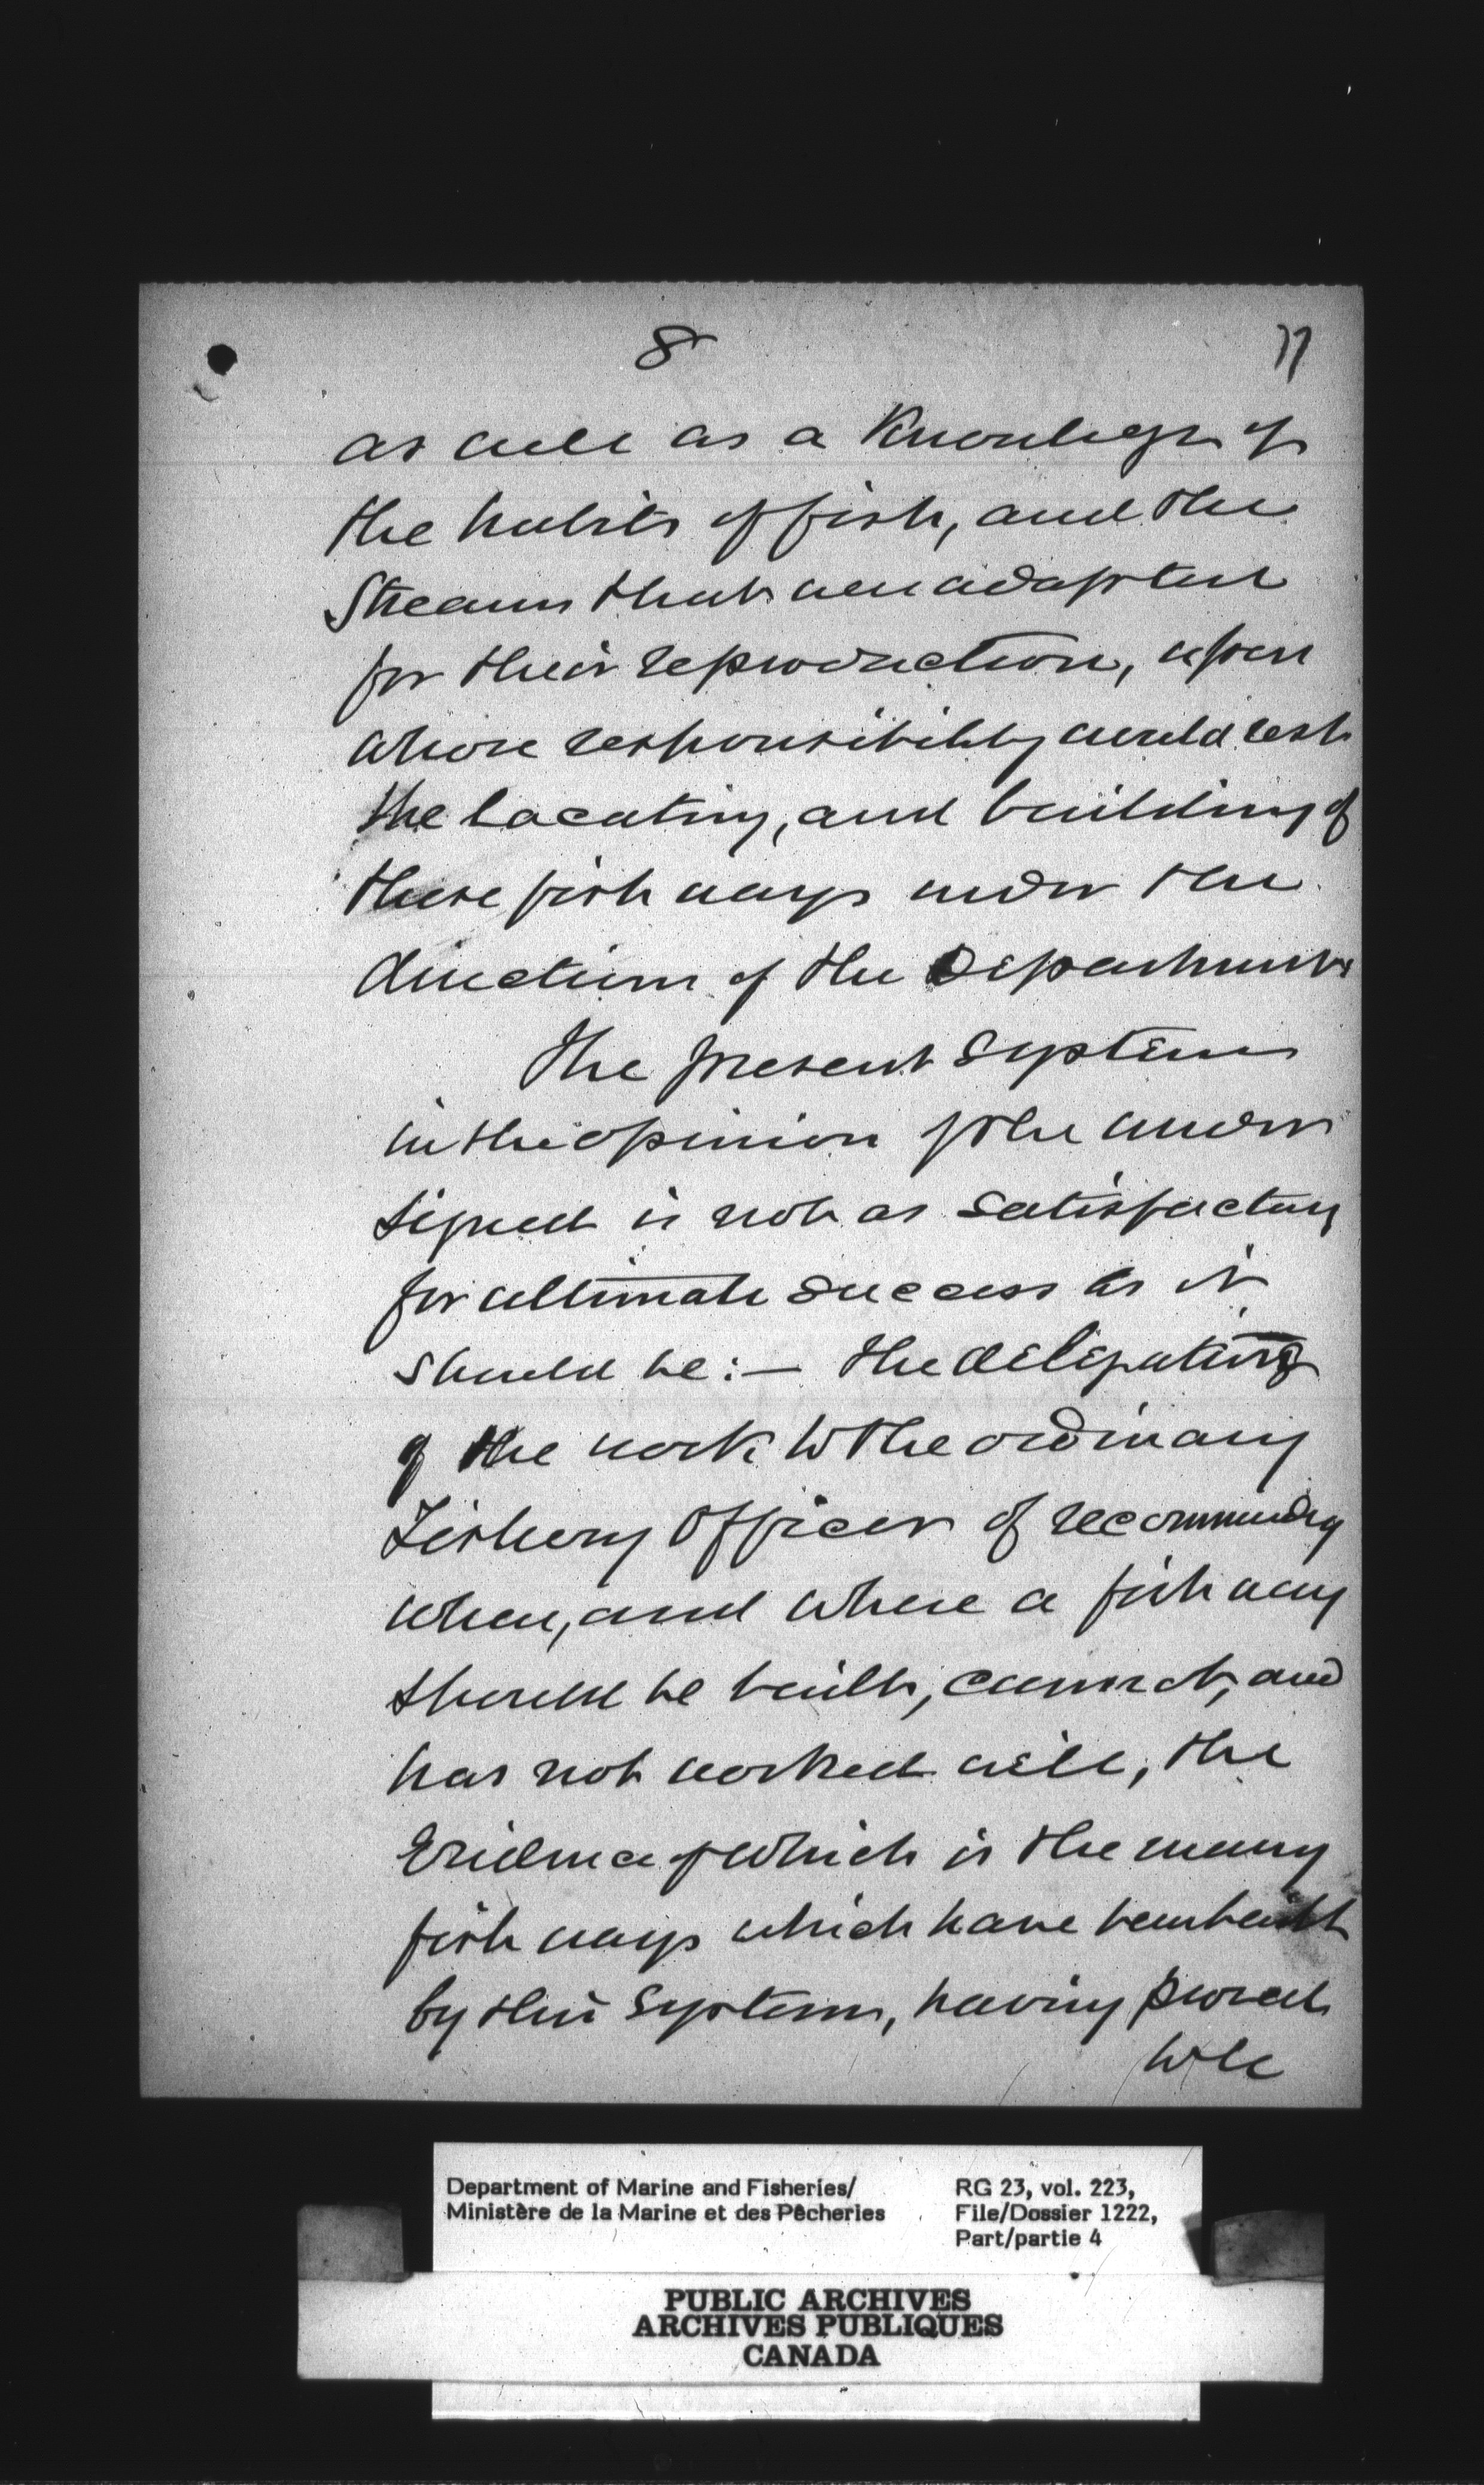 8
77
as well as a Knowledge of
the habits of fish, and the
Streams that are adapted
for their reproduction, upon
whose responsibility would rest
the locating, and building of
these fish ways under the
direction of the Department.
The present System
in the opinion of the under
signed is not as satisfactory
for ultimate success as it
should be:— the delegating
of the work to the ordinary
Fishery Officer of recommending
when, and where a fish way
should be built, cannot, and
has not worked well, the
Evidence of which is the many
fish ways which have been built
by this System, having proved
to be
Department of Marine and Fisheries/
Ministère de la Marine et des Pêcheries
RG 23, vol. 223,
File/Dossier 1222,
Part/partie 4
PUBLIC ARCHIVES
ARCHIVES PUBLIQUES
CANADA